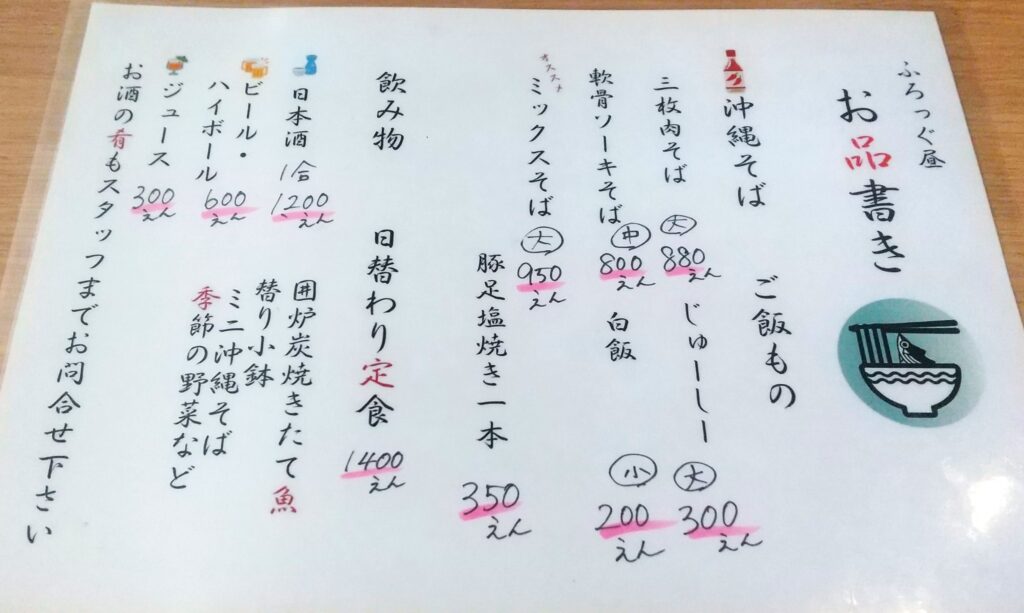 ふろっぐ昼
お品書き
沖縄そば
三枚肉そば
大
880
えん
軟骨ソーキそば
中
800
えん
オススメ
ミックスそば
大
950
えん
ご飯もの
じゅーしー
大
300
えん
白飯
小
200
えん
豚足塩焼き一本
350
えん
飲み物
日本酒
1合
1200
えん
ビール・
ハイボール
600
えん
ジュース
300
えん
日替わり定食
1400
えん
囲炉炭焼きたて魚
替り小鉢
ミニ沖縄そば
季節の野菜など
お酒の肴もスタッフまでお問合せ下さい